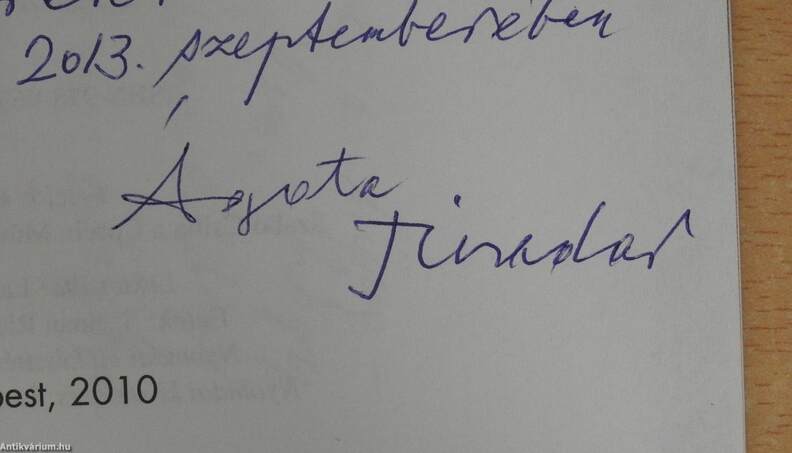 2013. szeptemberében
Ágota
Tiradar
best, 2010
Antikvárium.hu